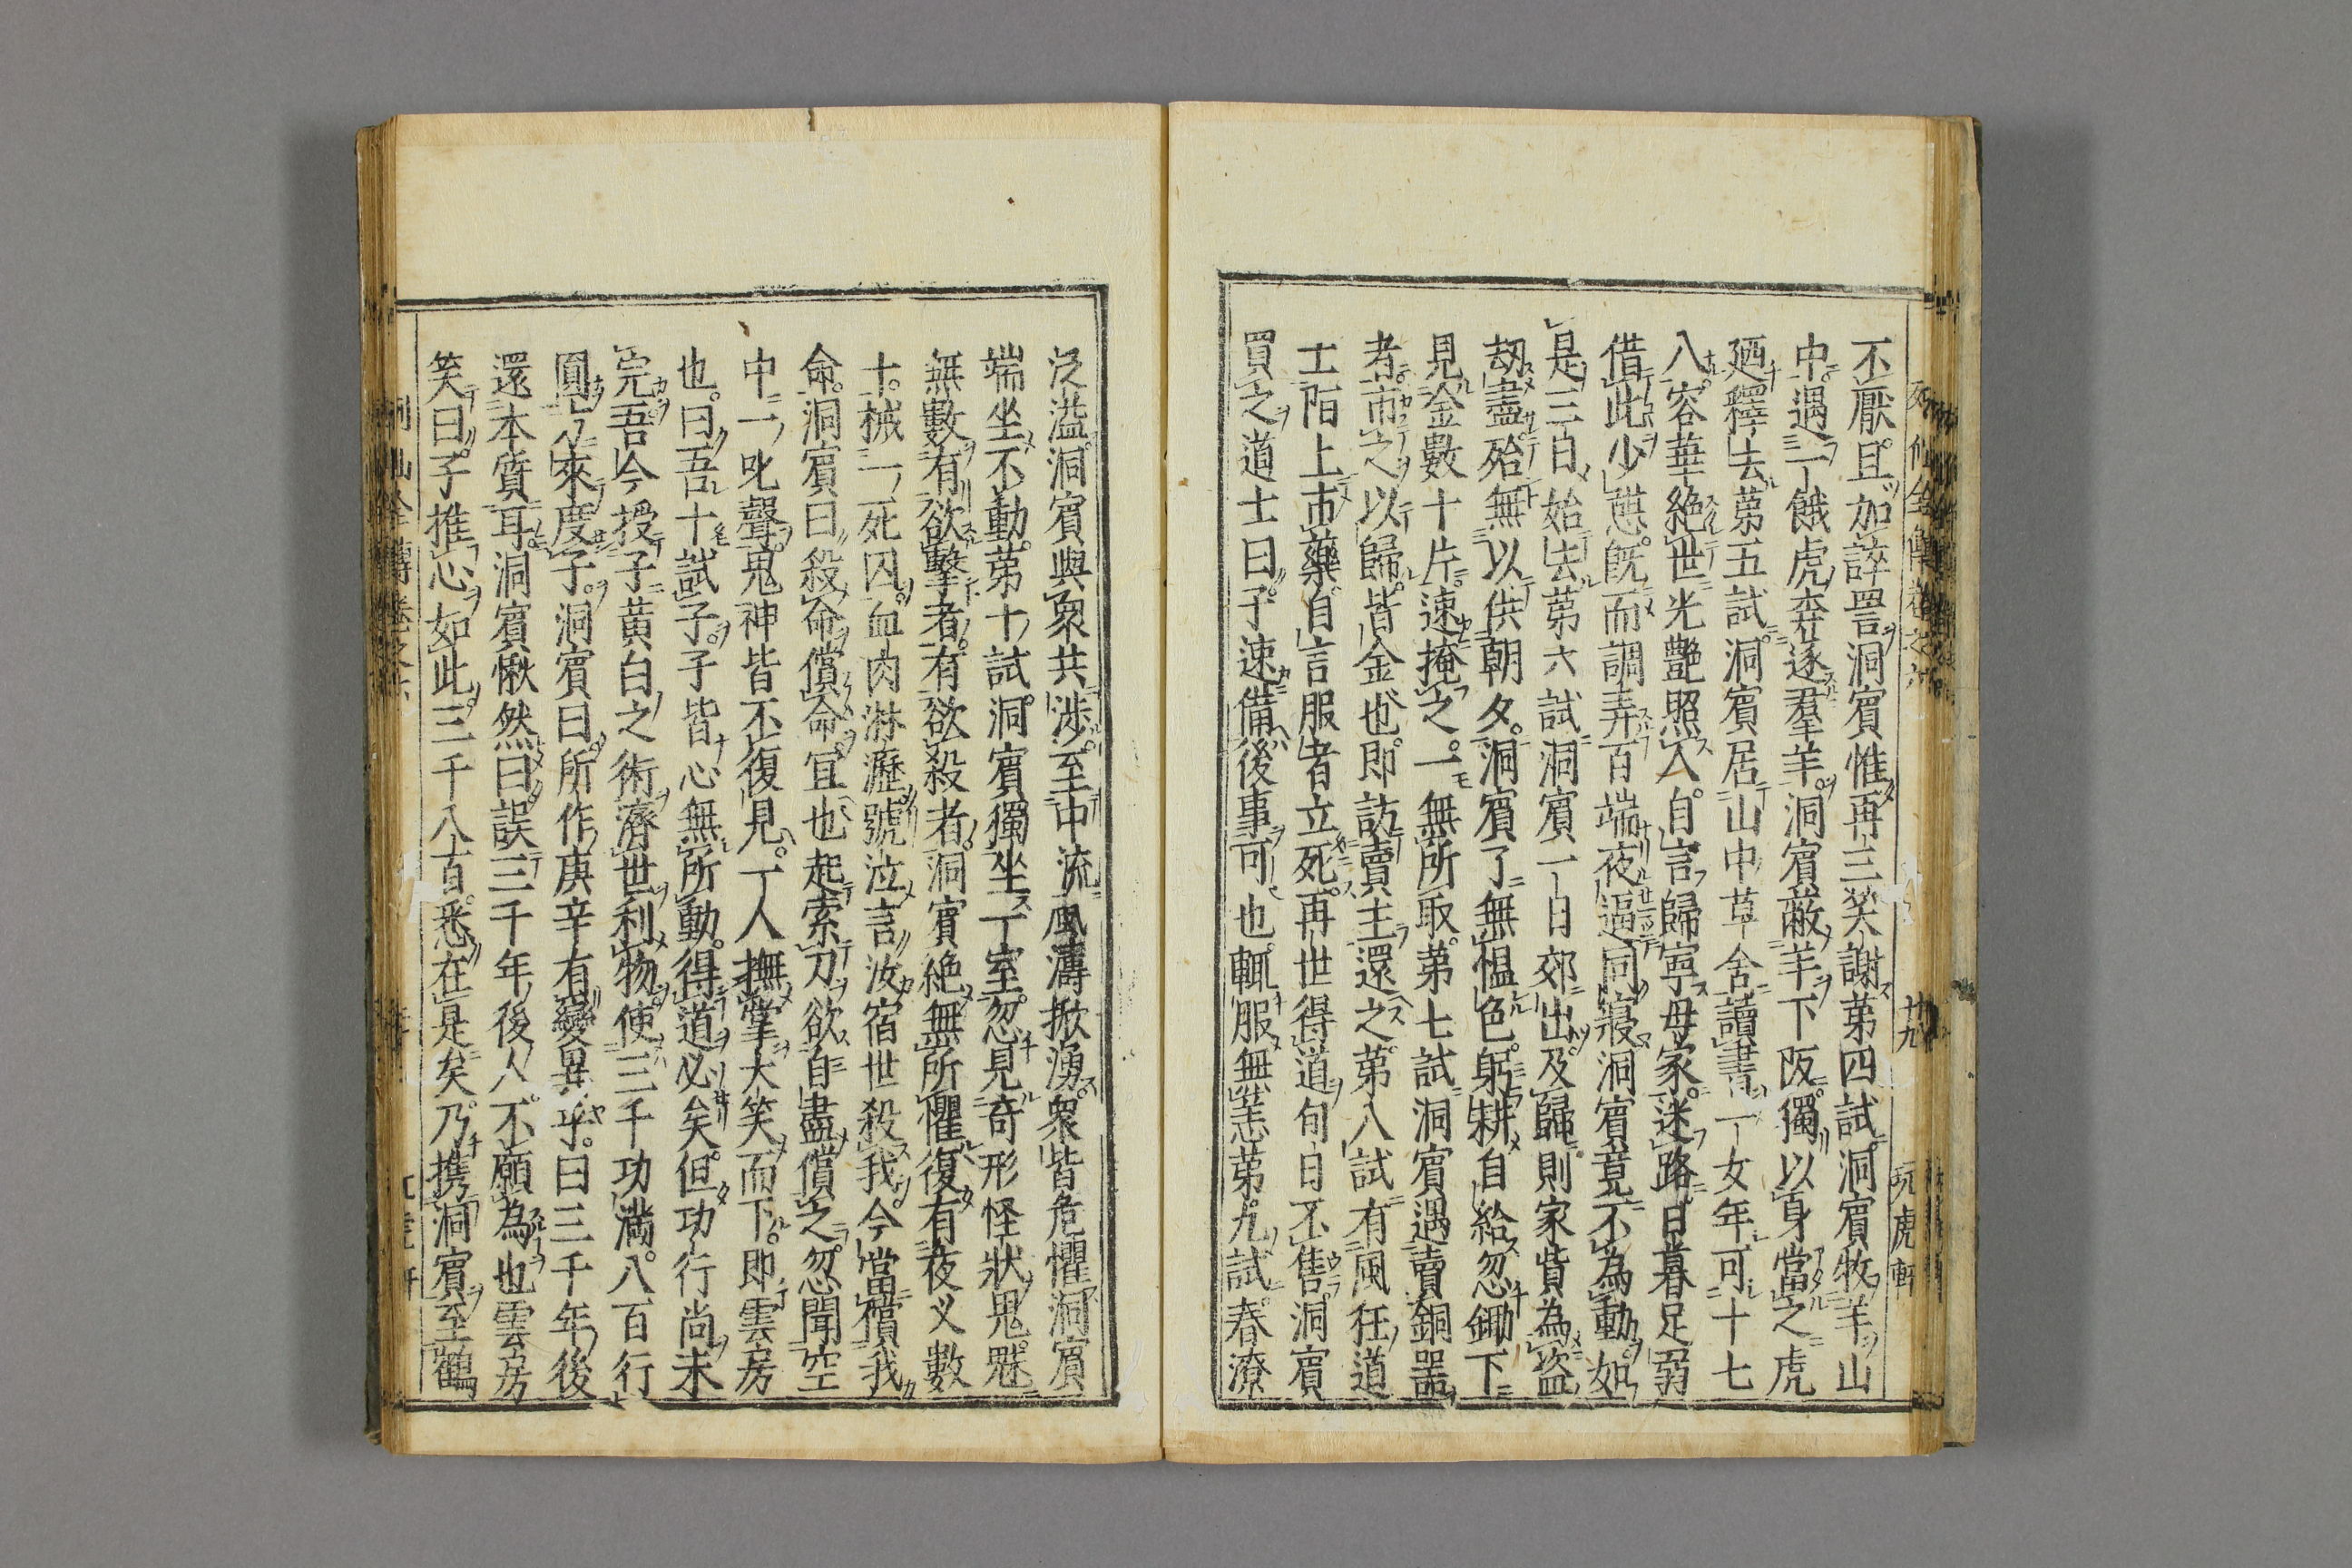 不厭且加誶詈洞賓惟再三笑謝第四試洞賓牧羊山
中遇一餓虎奔逐羣羊洞賓蔽羊下阪獨以身當之虎
廼釋去第五試洞賓居山中草舍讀書一女年可十七
八容華絶世光艷照人自言歸寧母家迷路日暮足弱
借此少憇旣而調弄百端夜逼同寢洞賓竟不為動如
是三日始去第六試洞賓一日郊出及歸則家貲為盜
刼盡殆無以供朝夕洞賓了無慍色躬耕自給忽鋤下
見金數十片速掩之一無所取第七試洞賓遇賣銅噐
者市之以歸皆金也即訪賣主還之第八試有風狂道
士陌上市藥自言服者立死再世得道旬日不售洞賓
買之道士曰子速備後事可也輒服無恙第九試春潦
泛溢洞賓與衆共渉至中流風濤掀湧衆皆危懼洞賓
端坐不動第十試洞賓獨坐一室忽見奇形怪狀鬼魅
無數有欲擊者有欲殺者洞賓絶無所懼復有夜义數
十械一死囚血肉淋瀝號泣言汝宿世殺我今當償我
命洞賓曰殺命償命宜也起索刀欲自盡償之忽聞空
中一叱聲鬼神皆不復見一人撫掌大笑而下即雲房
也曰吾十試子子皆心無所動得道必矣但功行尚未
完吾今授子黄白之術濟世利物使三千功満八百行
圓方來度子洞賓曰所作庚辛有變異乎曰三千年後
還本質耳洞賓愀然曰誤三千年後人不願為也雲房
笑曰子推心如此三千八百悉在是矣乃携洞賓至鶴
十九
玩虎軒